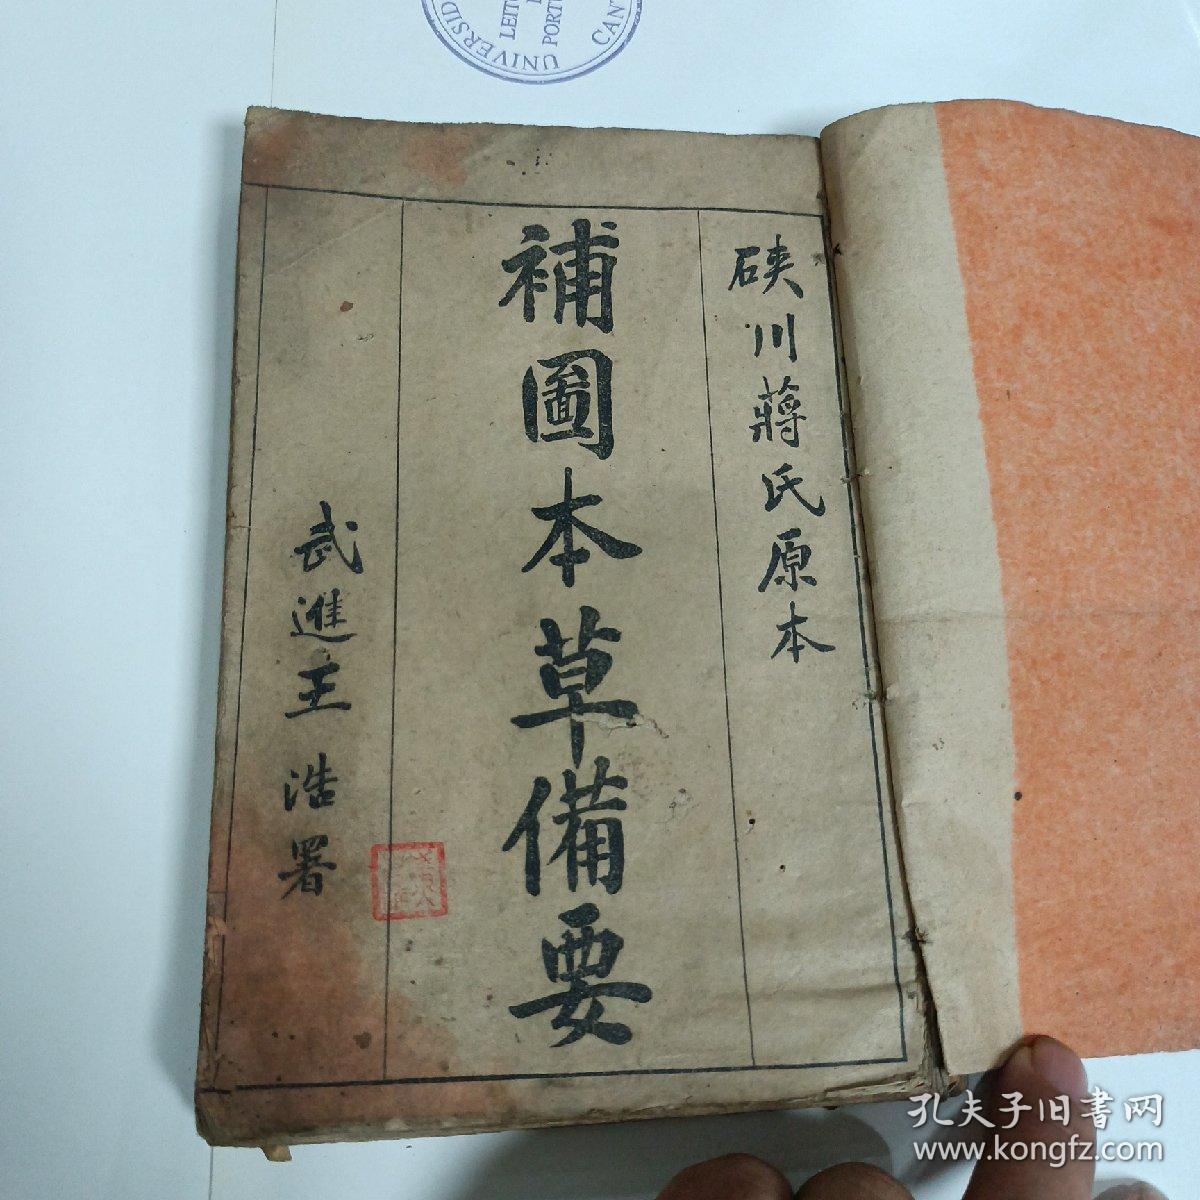 硤川蔣氏原本
補圖本草備要
武進王浩署
UNIVERSID
LEIT
PORTU
CANT
孔夫子旧书网
www.kongfz.com